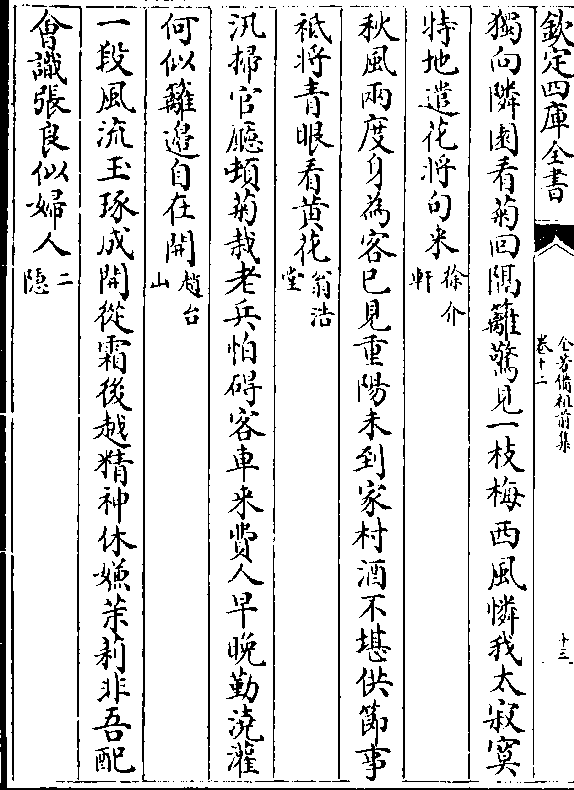 欽定四庫全書
全芳備祖前集
卷十二
十三
獨向隣園看菊回隔籬驚見一枝梅西風憐我太寂寞
特地遣花將句來徐介軒
秋風兩度身為客已見重陽未到家村酒不堪供節事
祗將青眼看黄花翁浩堂
汛掃官廳頓菊栽老兵怕碍客車来費人早晚勤澆灌
何似籬邉自在開趙台山
一段風流玉琢成開從霜後越精神休嫌茉莉非吾配
會識張良似婦人二隱